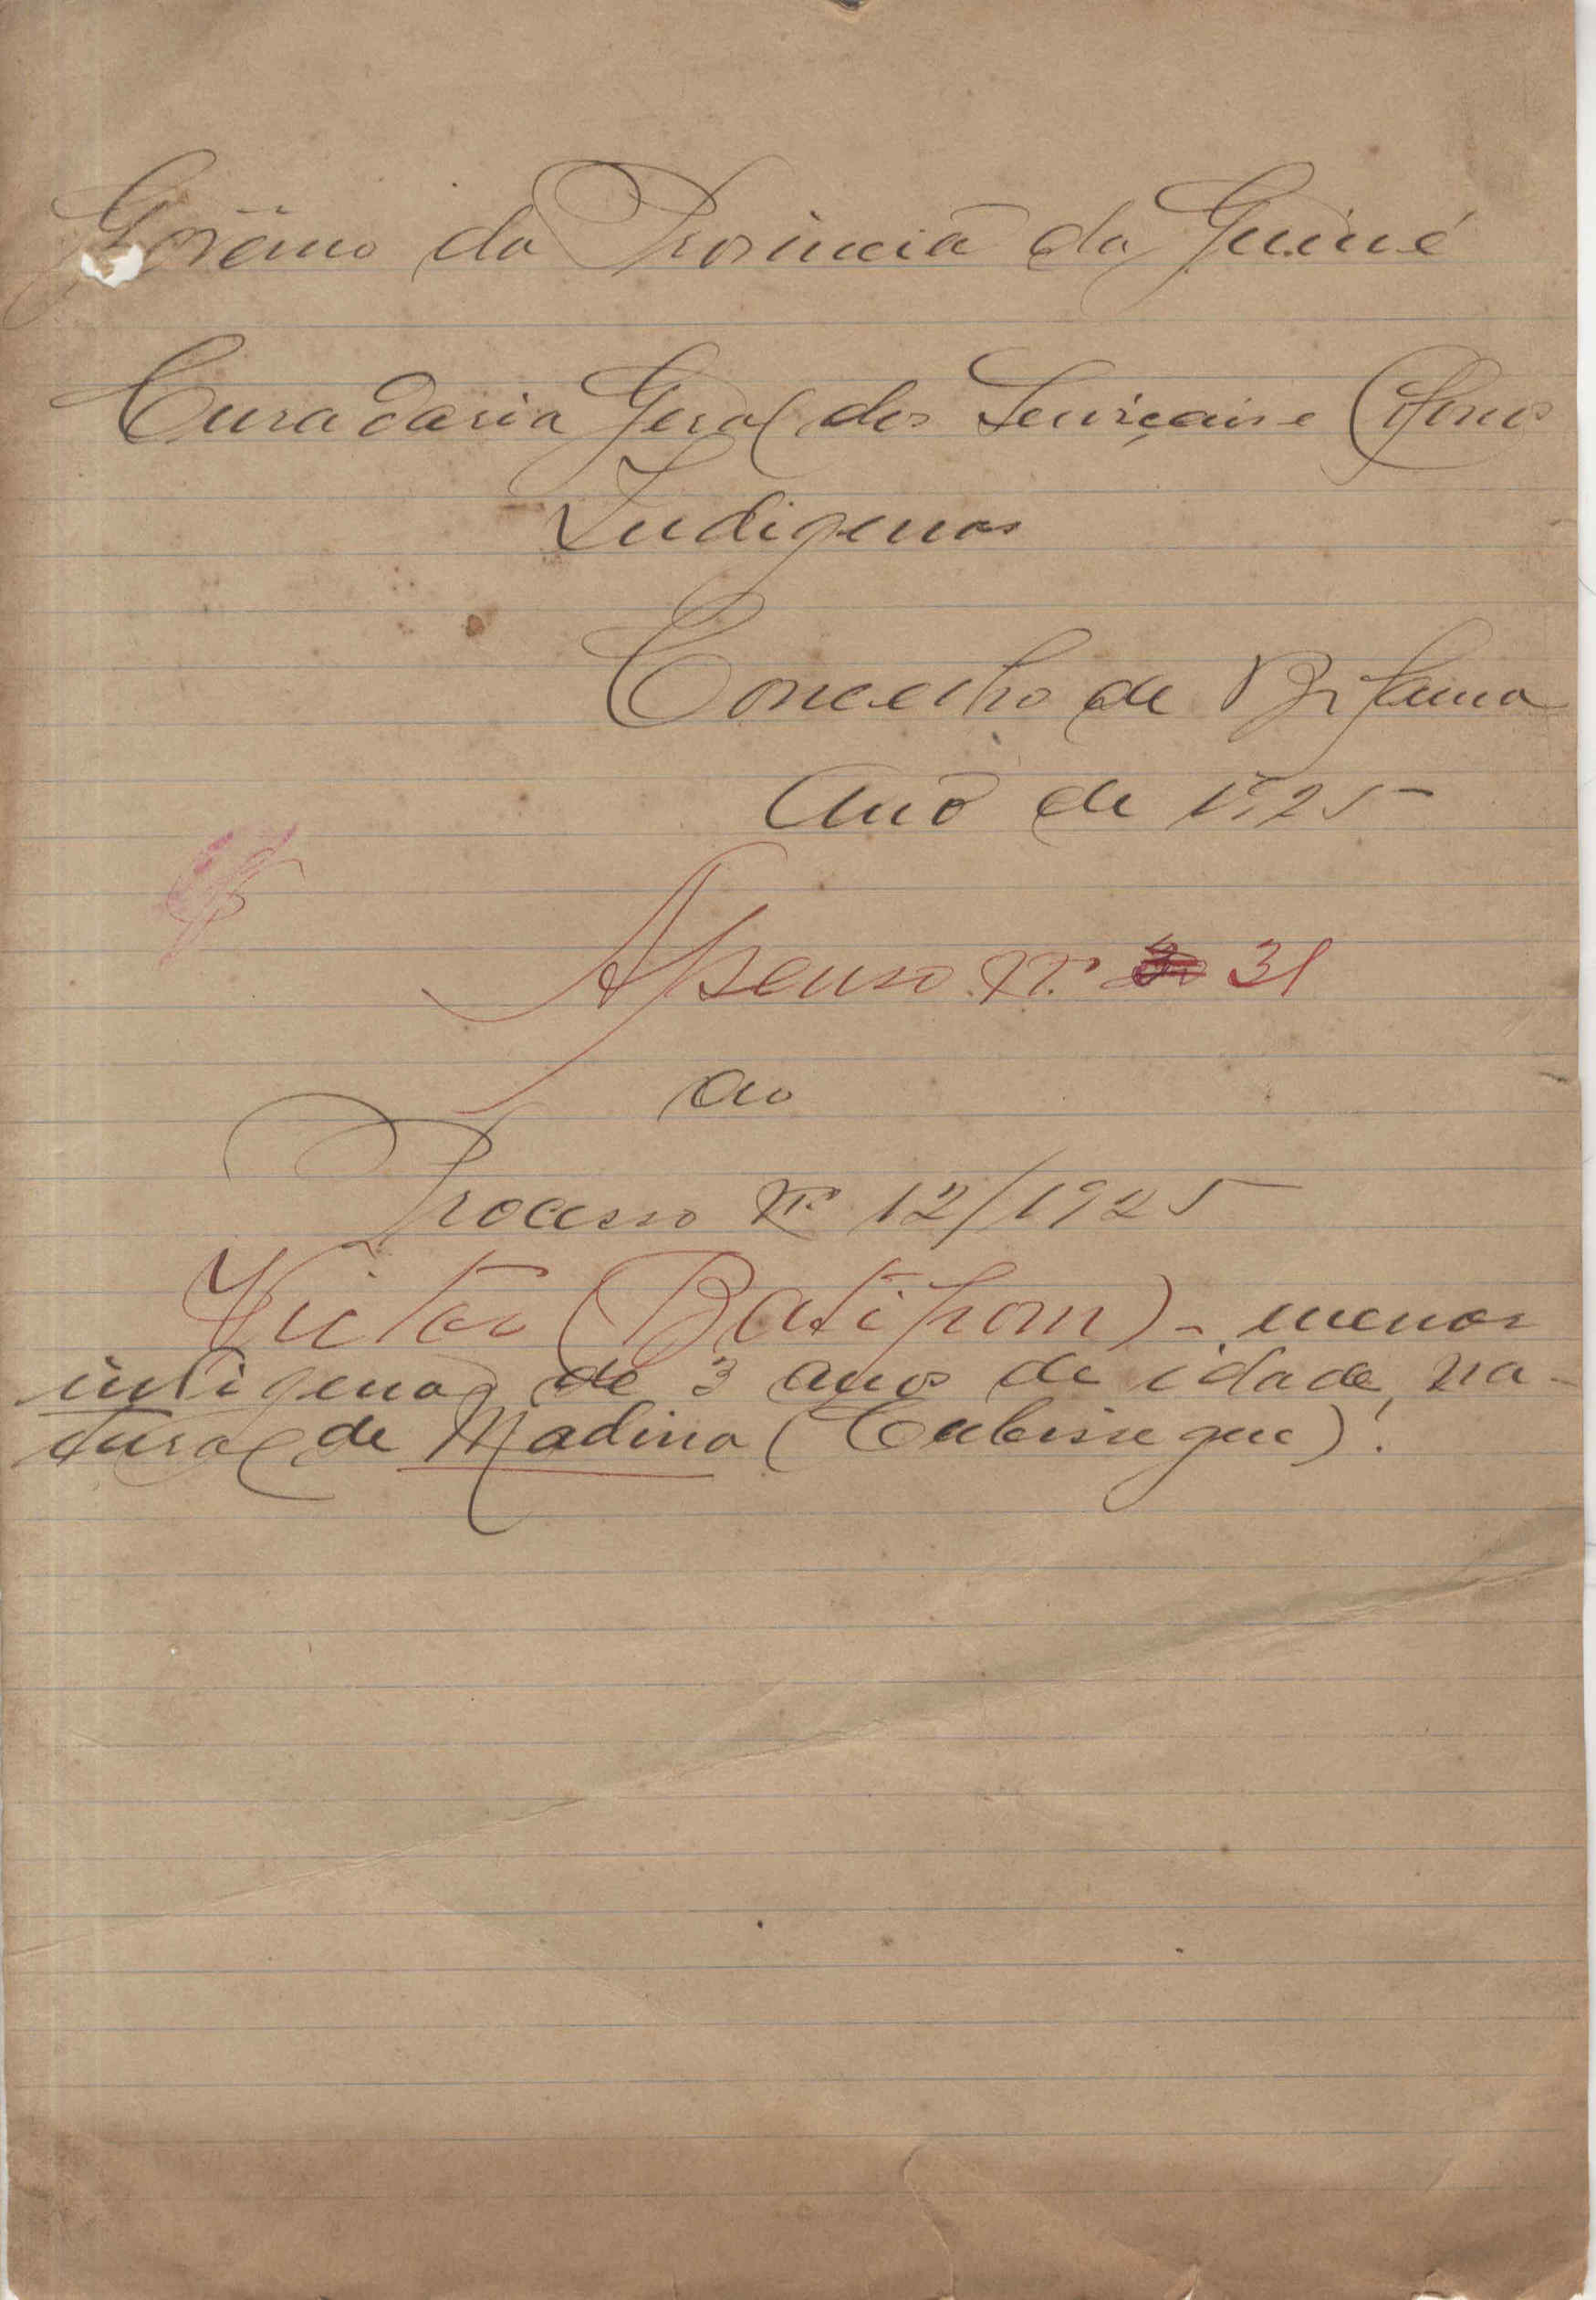 Govêrno da Provincia da Guiné
Curadoria Geral dos Serviçais e Colonos
Indigenas
Concelho de Bolama
Ano de 1925
Apenso Nº 31
ao
Processo Nº 12/1925
Victor (Batipom) - menor
indigena, de 3 anos de idade, na-
tural de Madina (Cubisseque).